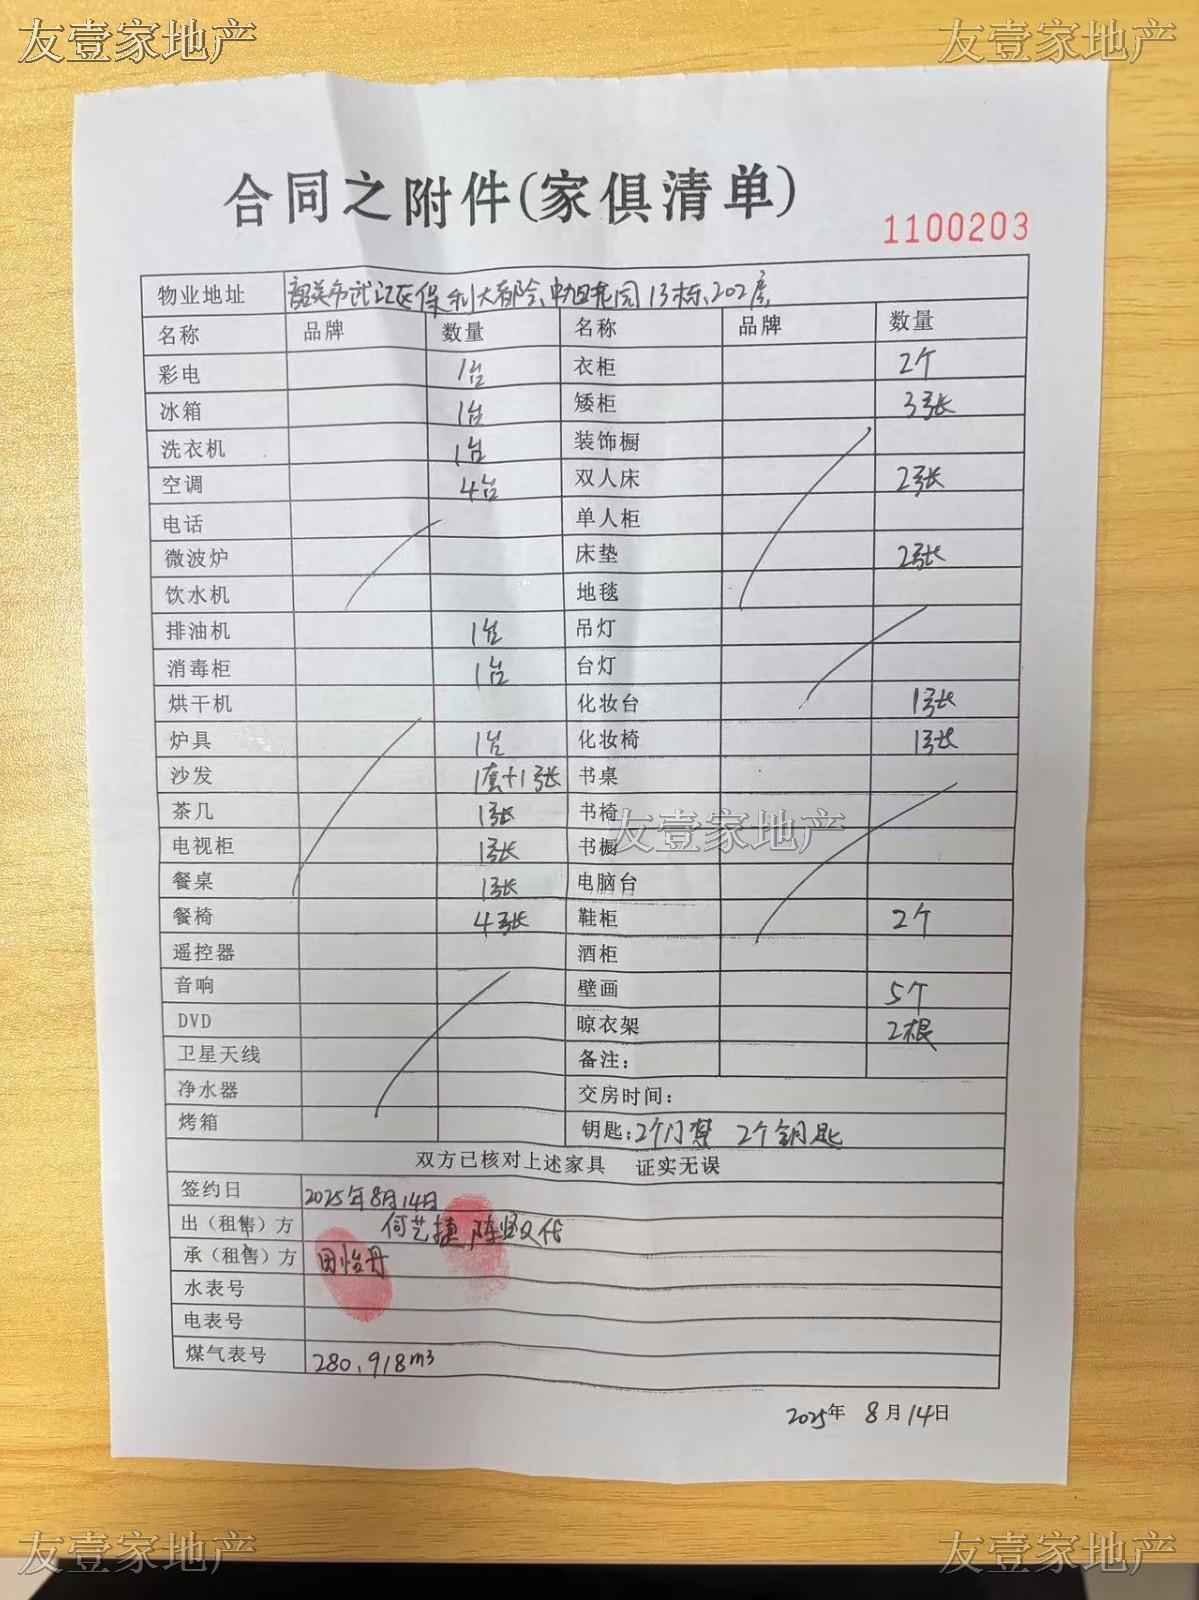 友壹家地产 友壹家地产
合同之附件(家俱清单)
1100203
物业地址 韶关市武江区保利大都会 花园13栋、202房
名称 品牌 数量 名称 品牌 数量
彩电 1台 衣柜 2个
冰箱 1台 矮柜 3张
洗衣机 1台 装饰橱
空调 4台 双人床 2张
电话 单人柜
微波炉 床垫 2张
饮水机 地毯
排油机 1台 吊灯
消毒柜 1台 台灯
烘干机 化妆台 1张
炉具 1台 化妆椅 1张
沙发 1套+1张 书桌
茶几 1张 书椅
友壹家地产
电视柜 1张 书橱
餐桌 1张 电脑台
餐椅 4张 鞋柜 2个
遥控器 酒柜
音响 壁画 5个
DVD 晾衣架 2根
卫星天线 备注:
净水器 交房时间:
烤箱 钥匙:2个门禁 2个钥匙
双方已核对上述家具 证实无误
签约日 2025年8月14日
出(租售)方 何艺捷 陈 代
承(租售)方 田怡丹
水表号
电表号
煤气表号 280.918m³
2025年 8月14日
友壹家地产 友壹家地产